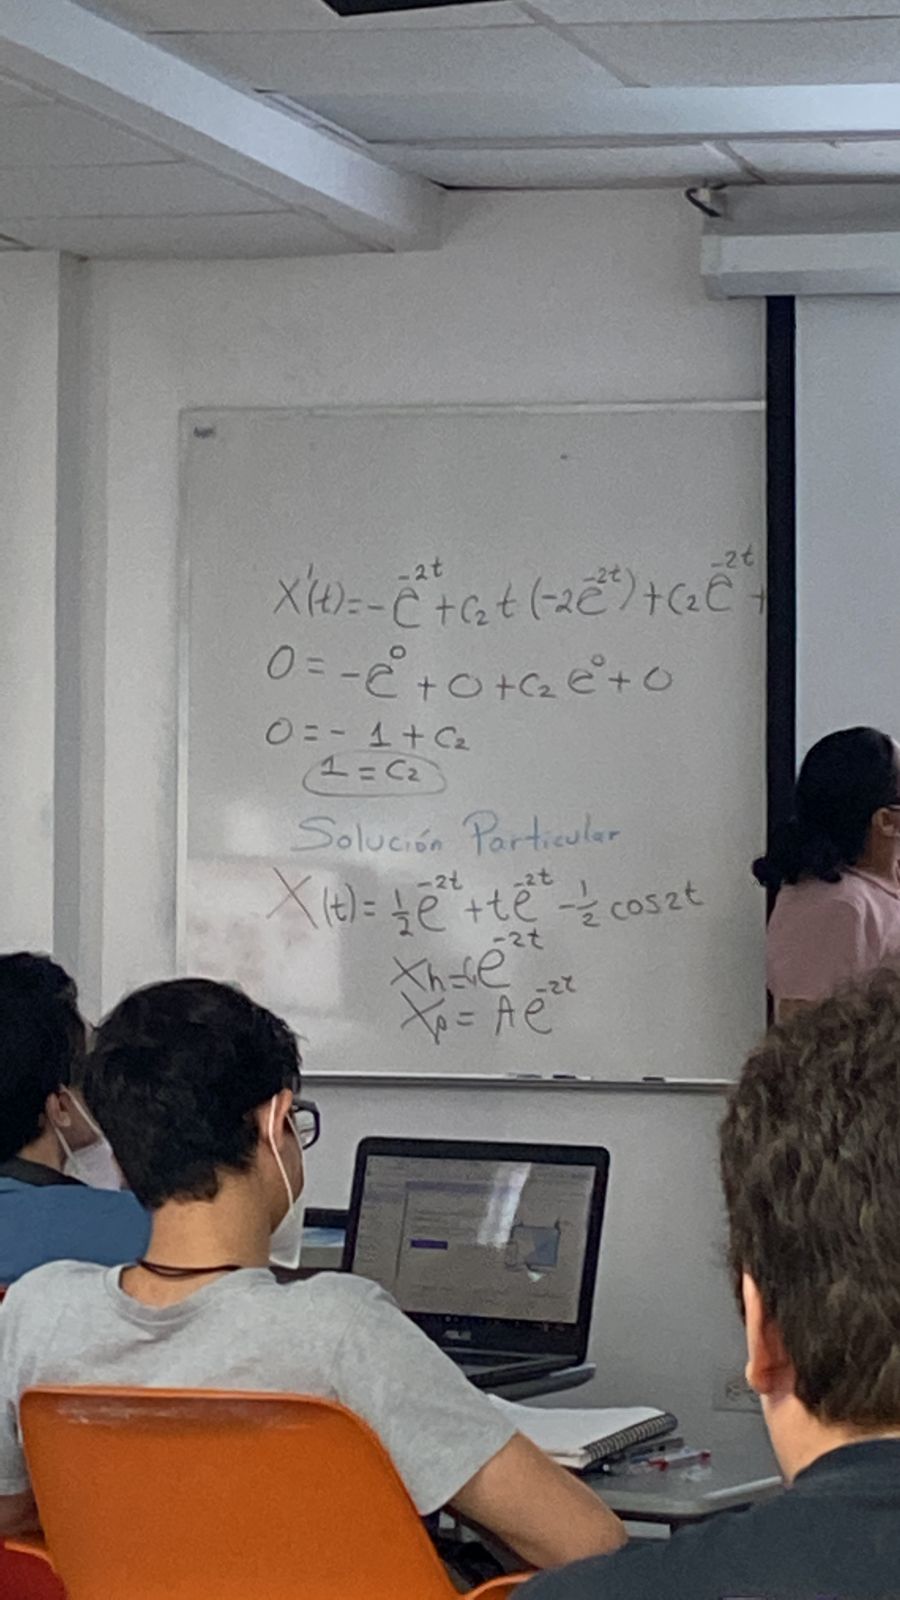 X'(t)=-e^-2t+c₂t(-2e^-2t)+c₂e^-2t+
0=-e^0+0+c₂e^0+0
0=-1+c₂
1=c₂
Solución Particular
X(t)=1/2e^-2t+te^-2t-1/2cos2t
Xh=ce^-2t
Xp=Ae^-2t
ASUS